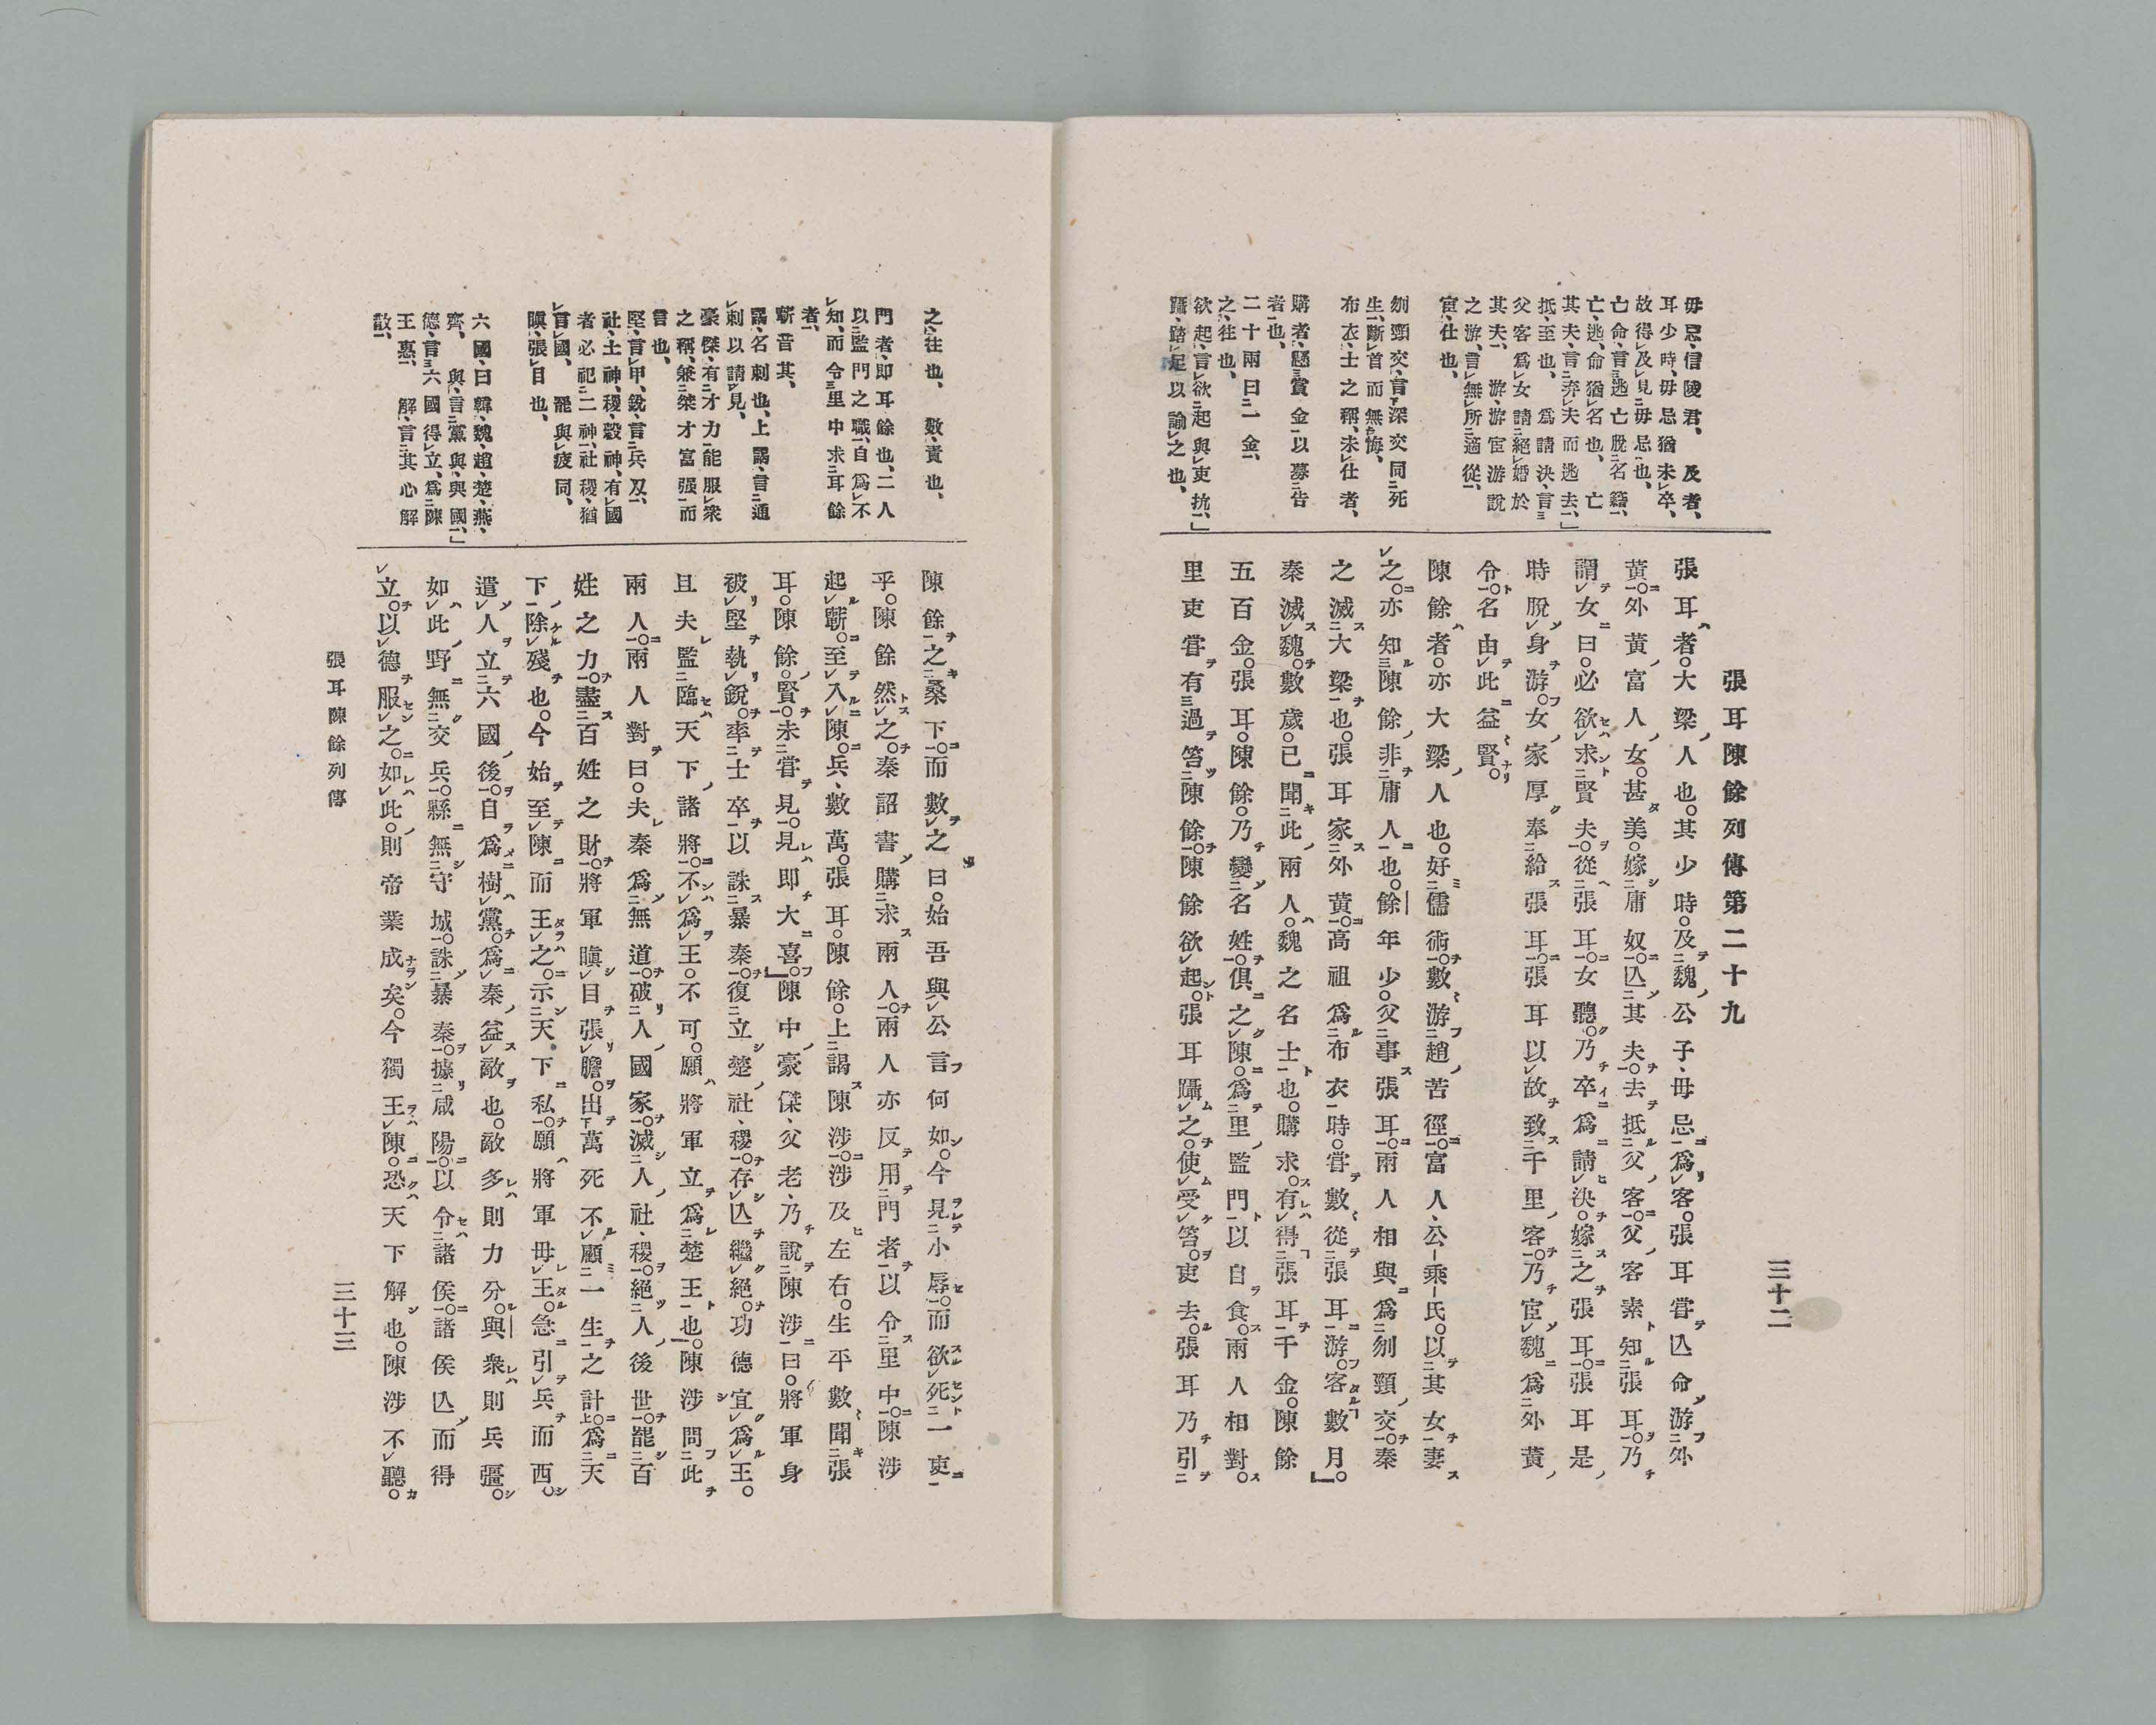 三十二
毋忌、信陵君、及者、
耳少時、毋忌猶未卒、
故得及見毋忌也、
亡命、言逃亡脫名籍、
亡、逃、命猶名也、亡
其夫、言弃夫而逃去、」
抵、至也、爲請決、言
父客爲女請絕婚於
其夫、游、游宦游說
之游、言無所適從、
宦、仕也、
刎頸交、言深交同死
生、斷首而無悔、
布衣、士之稱、未仕者、
購者、懸賞金以募告
者也、
二十兩曰一金、
之、往也、
欲起、言欲起與吏抗、」
躡、踏足以諭之也、
張耳陳餘列傳第二十九
張耳者。大梁人也。其少時。及魏公子、毋忌爲客。張耳嘗亾命游外
黃。外黃富人女。甚美。嫁庸奴。亾其夫。去抵父客。父客素知張耳。乃
謂女曰。必欲求賢夫。從張耳。女聽。乃卒爲請決。嫁之張耳。張耳是
時脫身游。女家厚奉給張耳。張耳以故致千里客。乃宦魏爲外黃
令。名由此益賢。
陳餘者。亦大梁人也。好儒術。數游趙苦徑。富人、公乘氏。以其女妻
之。亦知陳餘非庸人也。餘年少。父事張耳。兩人相與爲刎頸交。秦
之滅大梁也。張耳家外黃。高祖爲布衣時。嘗數從張耳游。客數月。」
秦滅魏。數歲。已聞此兩人。魏之名士也。購求。有得張耳千金。陳餘
五百金。張耳。陳餘。乃變名姓。俱之陳。爲里監門以自食。兩人相對。
里吏嘗有過笞陳餘。陳餘欲起。張耳躡之。使受笞。吏去。張耳乃引
之、往也、數、責也、
門者、卽耳餘也、二人
以監門之職、自爲不
知、而令里中求耳餘
者、
蘄音其、
謁、名刺也、上謁、言通
刺以請見、
豪傑、有才力能服衆
之稱、兼桀才富强而
言也、
堅、言甲、銳、言兵刄、
社、土神、稷、穀神、有國
者必祀二神、社稷、猶
言國、罷與疲同、
瞋、張目也、
六國、曰韓、魏、趙、楚、燕、
齊、與、言黨與、與國、」
德、言六國得立、爲陳
王惠、解、言其心解
散、
陳餘之桑下。而數之曰。始吾與公言何如。今見小辱。而欲死一吏
乎。陳餘然之。秦詔書購求兩人。兩人亦反用門者。以令里中。陳涉
起蘄。至入陳。兵、數萬。張耳。陳餘。上謁陳涉。涉及左右。生平數聞張
耳。陳餘。賢。未嘗見。見卽大喜。」陳中豪傑、父老、乃說陳涉曰。將軍身
被堅執銳。率士卒以誅暴秦。復立楚社、稷。存亾繼絕。功德宜爲王。
且夫監臨天下諸將。不爲王。不可。願將軍立爲楚王也。」陳涉問此
兩人。兩人對曰。夫秦爲無道。破人國家。滅人社、稷。絕人後世。罷百
姓之力。盡百姓之財。將軍瞋目張膽。出萬死不顧一生之計。爲天
下除殘也。今始至陳而王之。示天下私。願將軍毋王。急引兵而西。
遣人立六國後。自爲樹黨。爲秦益敵也。敵多則力分。與衆則兵彊。
如此野無交兵。縣無守城。誅暴秦。據咸陽。以令諸侯。諸侯亾而得
立。以德服之。如此。則帝業成矣。今獨王陳。恐天下解也。陳涉不聽。
張耳陳餘列傳
三十三